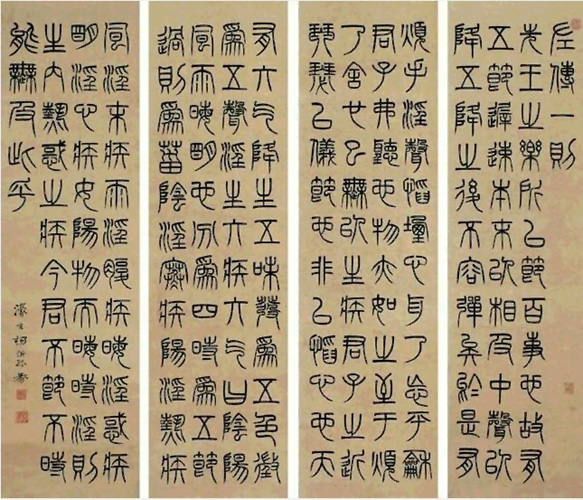 左傳一則
先王之樂所以節百事也故有
五節遲速本末以相及中聲以
降五降之後不容彈矣於是有
煩手淫聲慆堙心耳乃忘平龢
君子弗聽也物亦如之至于煩
乃舍也已無以生疾君子之近
琴瑟以儀節也非以慆心也天
有六气降生五味發為五色徵
為五聲淫生六疾六气曰陰陽
風雨晦明也分為四時為五節
過則為菑陰淫寒疾陽淫熱疾
風淫末疾雨淫腹疾晦淫惑疾
明淫心疾女陽物而晦時淫則
生內熱惑之疾今君不節不時
能無及此乎
濠叟楊沂孫篆